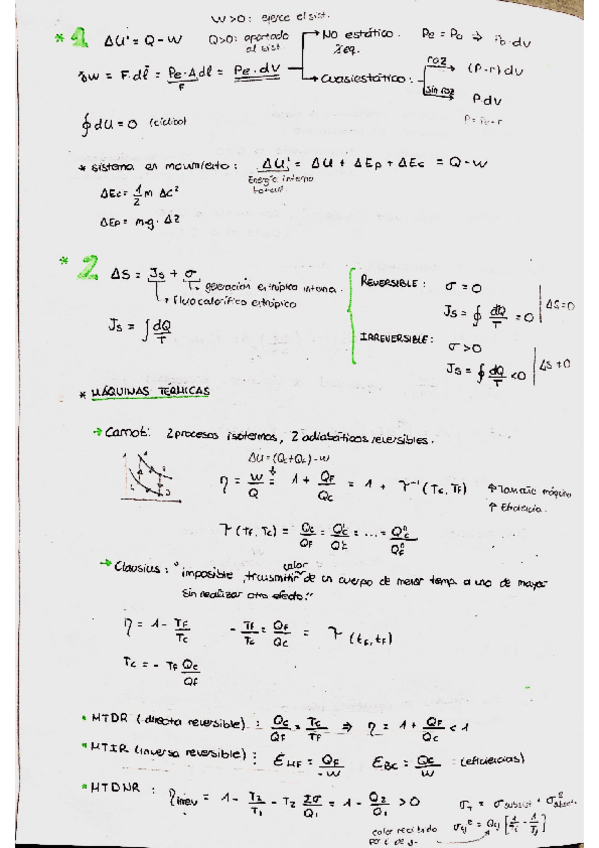 W>0: ejerce el sist.
* 1 ΔU' = Q - W Q>0: aportado al sist.
No estático. Pe = P₀ ⇒ P₀·dV
δW = F·dl = Pe·A dl = Pe·dV
F
Cuasiestático:
roz (P-r) dV
sin roz P dV
∮dU = 0 (ciclo)
* Sistema en movimiento: ΔU' = ΔU + ΔEp + ΔEc = Q - W
Energía interna total
ΔEc = 1/2 m Δc²
ΔEp = m·g·Δz
* 2 ΔS = Js + σ
generación entrópica interna.
Flujo calorífico entrópico
Js = ∫ dQ/T
REVERSIBLE: σ = 0
Js = ∮ dQ/T = 0 ΔS=0
IRREVERSIBLE: σ > 0
Js = ∮ dQ/T < 0 ΔS ≠ 0
* MÁQUINAS TÉRMICAS
→ Carnot: 2 procesos isotermos, 2 adiabáticos reversibles.
ΔU = (Qc+Qf) - W
η = W/Q = 1 + QF/QC = 1 + γ⁻¹ (Tc, TF)
↑ Tamaño máquina
↑ Eficiencia.
γ (TF, Tc) = QC/QF = Q'C/Q'F = ... = QⁿC/QⁿF
→ Clausius: "imposible transmitir calor de un cuerpo de menor temp. a uno de mayor
sin realizar otro efecto."
η = 1 - TF/TC - TF/TC = QF/QC = γ (tc, tF)
Tc = - TF QC/QF
* MTDR (directa reversible): QC/QF = TC/TF ⇒ η = 1 + QF/QC < 1
* MTIR (inversa reversible): EMF = QF/-W EBC = QC/W (eficiencias)
* MTDNR: ηirrev = 1 - T2/T1 - T2 Σσ/Q1 = 1 - Q2/Q1 > 0
calor recibido